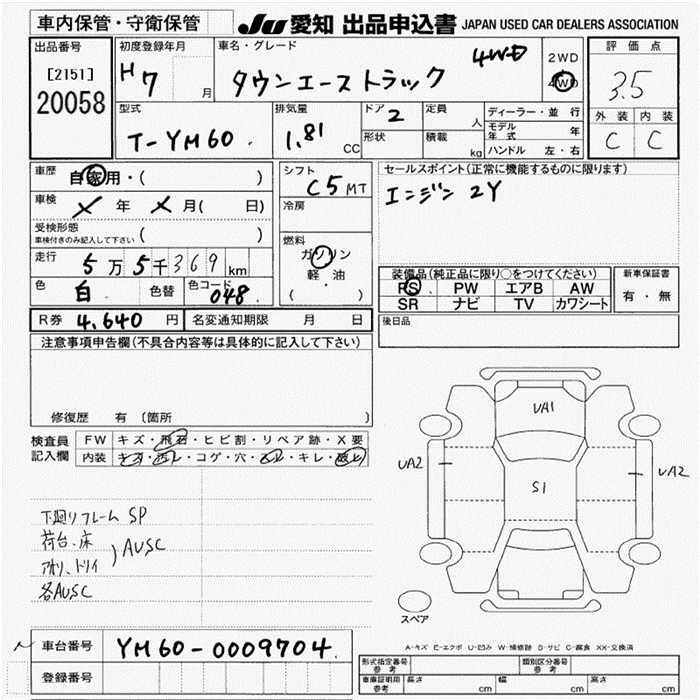 車内保管・守衛保管
JU 愛知 出品申込書 JAPAN USED CAR DEALERS ASSOCIATION
出品番号
[2151]
20058
初度登録年月
H 7 月
車名・グレード
タウンエーストラック 4WD
2WD
4WD
評価点
3.5
外装 内装
C C
型式
T-YM60.
排気量
1.81 CC
ドア 2
形状
定員 人
積載 kg
ディーラー・並行
モデル年式 年
ハンドル 左・右
車歴
自家用・( )
車検
メ 年 メ 月( 日)
受検形態
車検付きのみ記入して下さい ( )
走行
5万5千369 km
色 白.
色替
色コード 048.
シフト
C5 MT
冷房
燃料
ガソリン
軽・油
( )
セールスポイント(正常に機能するものに限ります)
エンジン 2Y
装備品(純正品に限り○をつけてください)
PS PW エアB AW
SR ナビ TV カワシート
新車保証書
有・無
後日品
R券 4,640 円
名変通知期限 月 日
注意事項申告欄(不具合内容等は具体的に記入して下さい)
修復歴 有 〔箇所
検査員記入欄
FW キズ・飛石・ヒビ割・リペア跡・X要
内装 キズ・汚レ・コゲ・穴・ヌレ・キレ・破レ
下廻りフレーム SP
荷台.床
アオリ、トリイ
) AUSC
各AUSC
UA1
UA2
S1
UA2
スペア
A-キズ E-エクボ U-凹み W-補修跡 S-サビ C-腐食 XX-交換済
車台番号 YM60-0009704.
登録番号
型式指定番号 参考
類別区分番号 参考
車庫証明用 参考
長さ cm
幅 cm
高さ cm